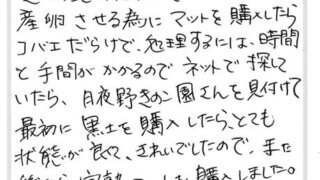 産卵させる為にマットを購入したら
コバエだらけで、処理するには、時間
と手間がかかるのでネットで探して
いたら、月夜野きのこ園さんを見付けて
最初に黒土を購入したら、とても
状態が良く、きれいでしたので、また
購入しました。